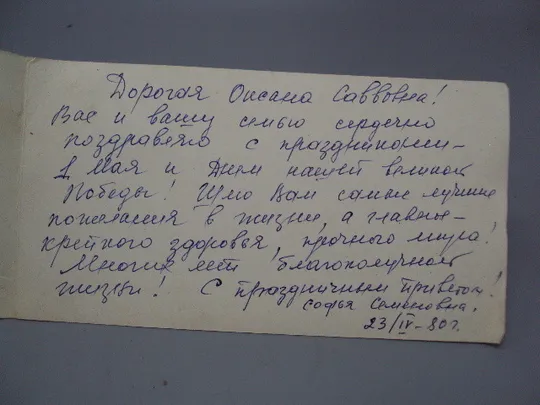 Дорогая Оксана Саввовна!
Вас и вашу семью сердечно
поздравляю с праздниками–
1 Мая и Днем нашей великой
Победы! Шлю Вам самые лучшие
пожелания в жизни, а главн–
крепкого здоровья, прочного мира!
Многих лет благополучной
жизни! С праздничным приветом!
Софья Семеновна.
23/IV–80г.